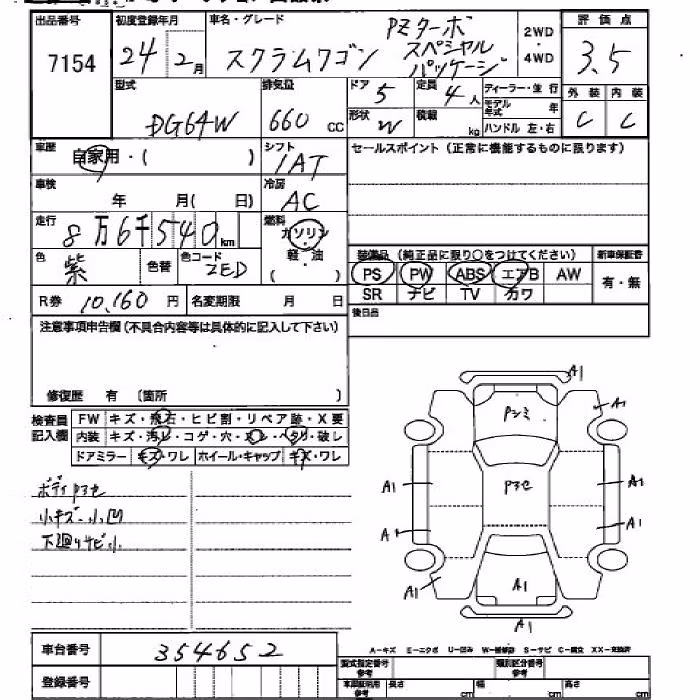 出品番号 初度登録年月 車名・グレード 評価点
7154 24年2月 スクラムワゴン PZターボ スペシャル パッケージ 2WD・4WD 3.5
型式 排気量 ドア 5 定員 4人 ディーラー・並行 外装 内装
モデル年式 年
DG64W 660cc 形状 W 積載 kg ハンドル 左・右 C C
車歴 自家用・( ) シフト IAT セールスポイント (正常に機能するものに限ります)
車検 年 月( 日) 冷房 AC
走行 8万6千540km 燃料 ガソリン
軽・油
( )
色 紫 色替 色コード ZED
装備品 (純正品に限り○をつけてください) 新車保証書
PS PW ABS エアB AW 有・無
SR ナビ TV カワ
R券 10,160円 名変期限 月 日
後日品
注意事項申告欄 (不具合内容等は具体的に記入して下さい)
修復歴 有 (箇所 )
検査員記入欄 FW キズ・飛石・ヒビ割・リペア跡・X要
内装 キズ・汚レ・コゲ・穴・スレ・ヘタリ・破レ
ドアミラー キズ・ワレ ホイール・キャップ キズ・ワレ
ボディPヨセ
小キズ・小凹
下廻りサビ小
A1
Pシミ A1
A1 Pヨセ A1
A A1
A1 A1
A1
車台番号 354652
A-キズ E-エクボ U-凹み W-補修跡 S-サビ C-腐食 XX-交換済
登録番号
型式指定番号 参考 類別区分番号 参考
車庫証明用 参考 長さ cm 幅 cm 高さ cm